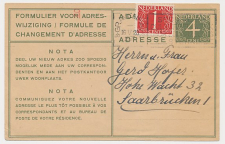 FORMULIER VOOR ADRES-
WIJZIGING / FORMULE DE
CHANGEMENT D'ADRESSE
NOTA
DEEL UW NIEUW ADRES ZOO SPOEDIG
MOGELIJK MEDE AAN UW CORRESPON-
DENTEN EN AAN HET POSTKANTOOR
UWER WOONPLAATS.
NOTA
COMMUNIQUEZ VOTRE NOUVELLE
ADRESSE LE PLUS TÔT POSSIBLE À VOS
CORRESPONDANTS ET AU BUREAU DE
POSTE DE VOTRE RÉSIDENCE.
1
4
ADRESSE
Herrn u. Frau
Gerd Hoyer
Hohe Wacht 32
Saarbrücken 1